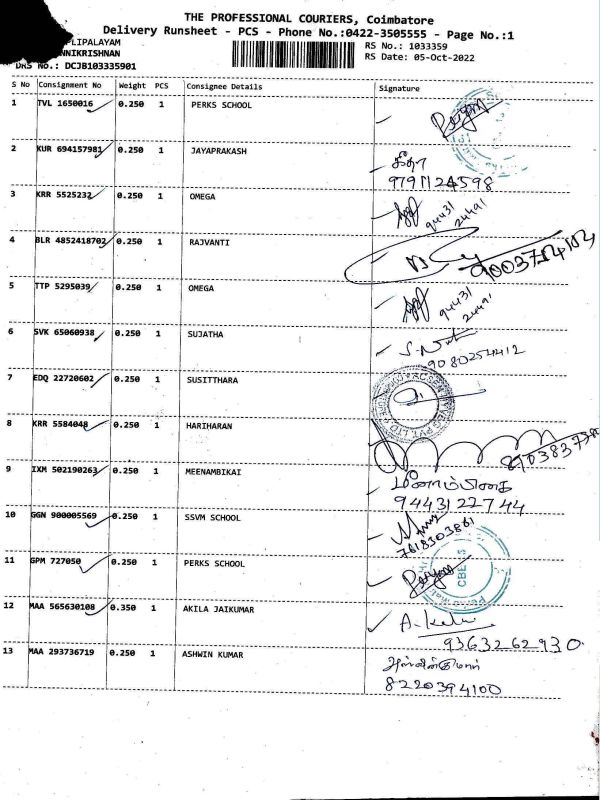 THE PROFESSIONAL COURIERS, Coimbatore
Delivery Runsheet - PCS - Phone No.:0422-3505555 - Page No.:1
LIPALAYAM
NNIKRISHNAN
DRS No.: DCJB103335901
RS No.: 1033359
RS Date: 05-Oct-2022
S No Consignment No Weight PCS Consignee Details Signature
1 TVL 1650016 0.250 1 PERKS SCHOOL
2 KUR 694157981 0.250 1 JAYAPRAKASH கீதா
9791124598
3 KRR 5525232 0.250 1 OMEGA 94431
24491
4 BLR 4852418702 0.250 1 RAJVANTI
5 TTP 5295039 0.250 1 OMEGA 94431
24491
6 SVK 65060938 0.250 1 SUJATHA
9080254412
7 EDQ 22720602 0.250 1 SUSITTHARA
8 KRR 5584048 0.250 1 HARIHARAN
9 IXM 502190263 0.250 1 MEENAMBIKAI மீனாம்பிகை
9443122744
10 GGN 900005569 0.250 1 SSVM SCHOOL
7618303861
11 GPM 727050 0.250 1 PERKS SCHOOL
12 MAA 565630108 0.350 1 AKILA JAIKUMAR
9363262930
13 MAA 293736719 0.250 1 ASHWIN KUMAR அஸ்வின்குமார்
8220394100